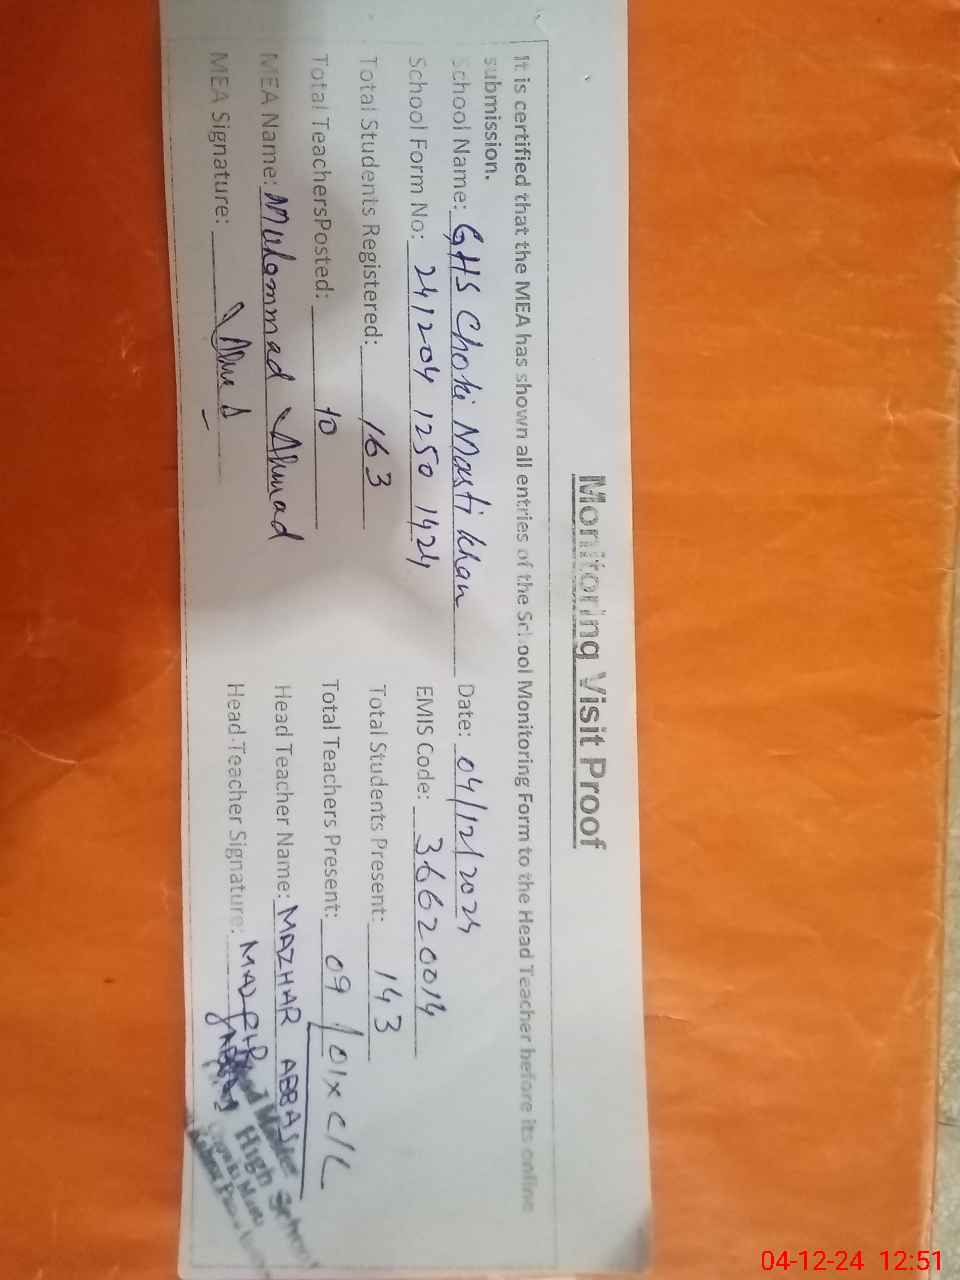 Monitoring Visit Proof
It is certified that the MEA has shown all entries of the School Monitoring Form to the Head Teacher before its online
submission.
School Name: GHS Choki Masti Khan Date: 04/12/2024
School Form No: 241204 1250 1424 EMIS Code: 36620014
Total Students Registered: 163 Total Students Present: 143
Total TeachersPosted: 10 Total Teachers Present: 09 / 01x C/L
MEA Name: Muhammad Ahmad Head Teacher Name: MAZHAR ABBAS
MEA Signature: Head Teacher Signature:
Head Master
High School
04-12-24 12:51